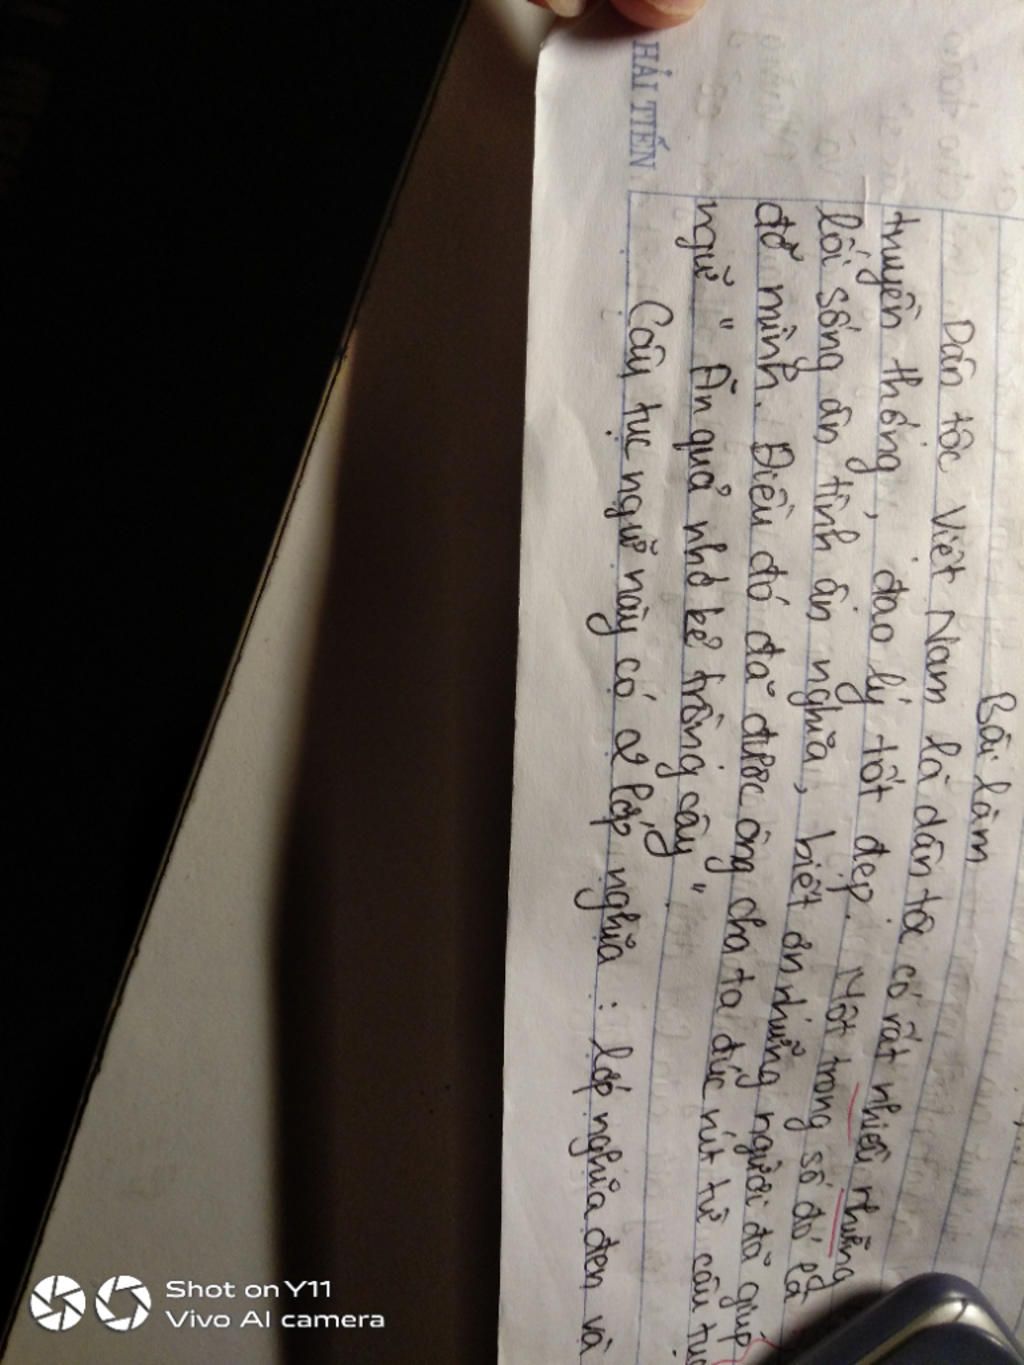 Bài làm
Dân tộc Việt Nam là dân tộc có rất nhiều những
truyền thống, đạo lý tốt đẹp. Một trong số đó là
lối sống ân tình ân nghĩa, biết ơn những người đã giúp
đỡ mình. Điều đó đã được ông cha ta đúc rút từ câu tục
ngữ " Ăn quả nhớ kẻ trồng cây "
Câu tục ngữ này có 2 lớp nghĩa : lớp nghĩa đen và
HẢI TIẾN
Shot on Y11
Vivo AI camera